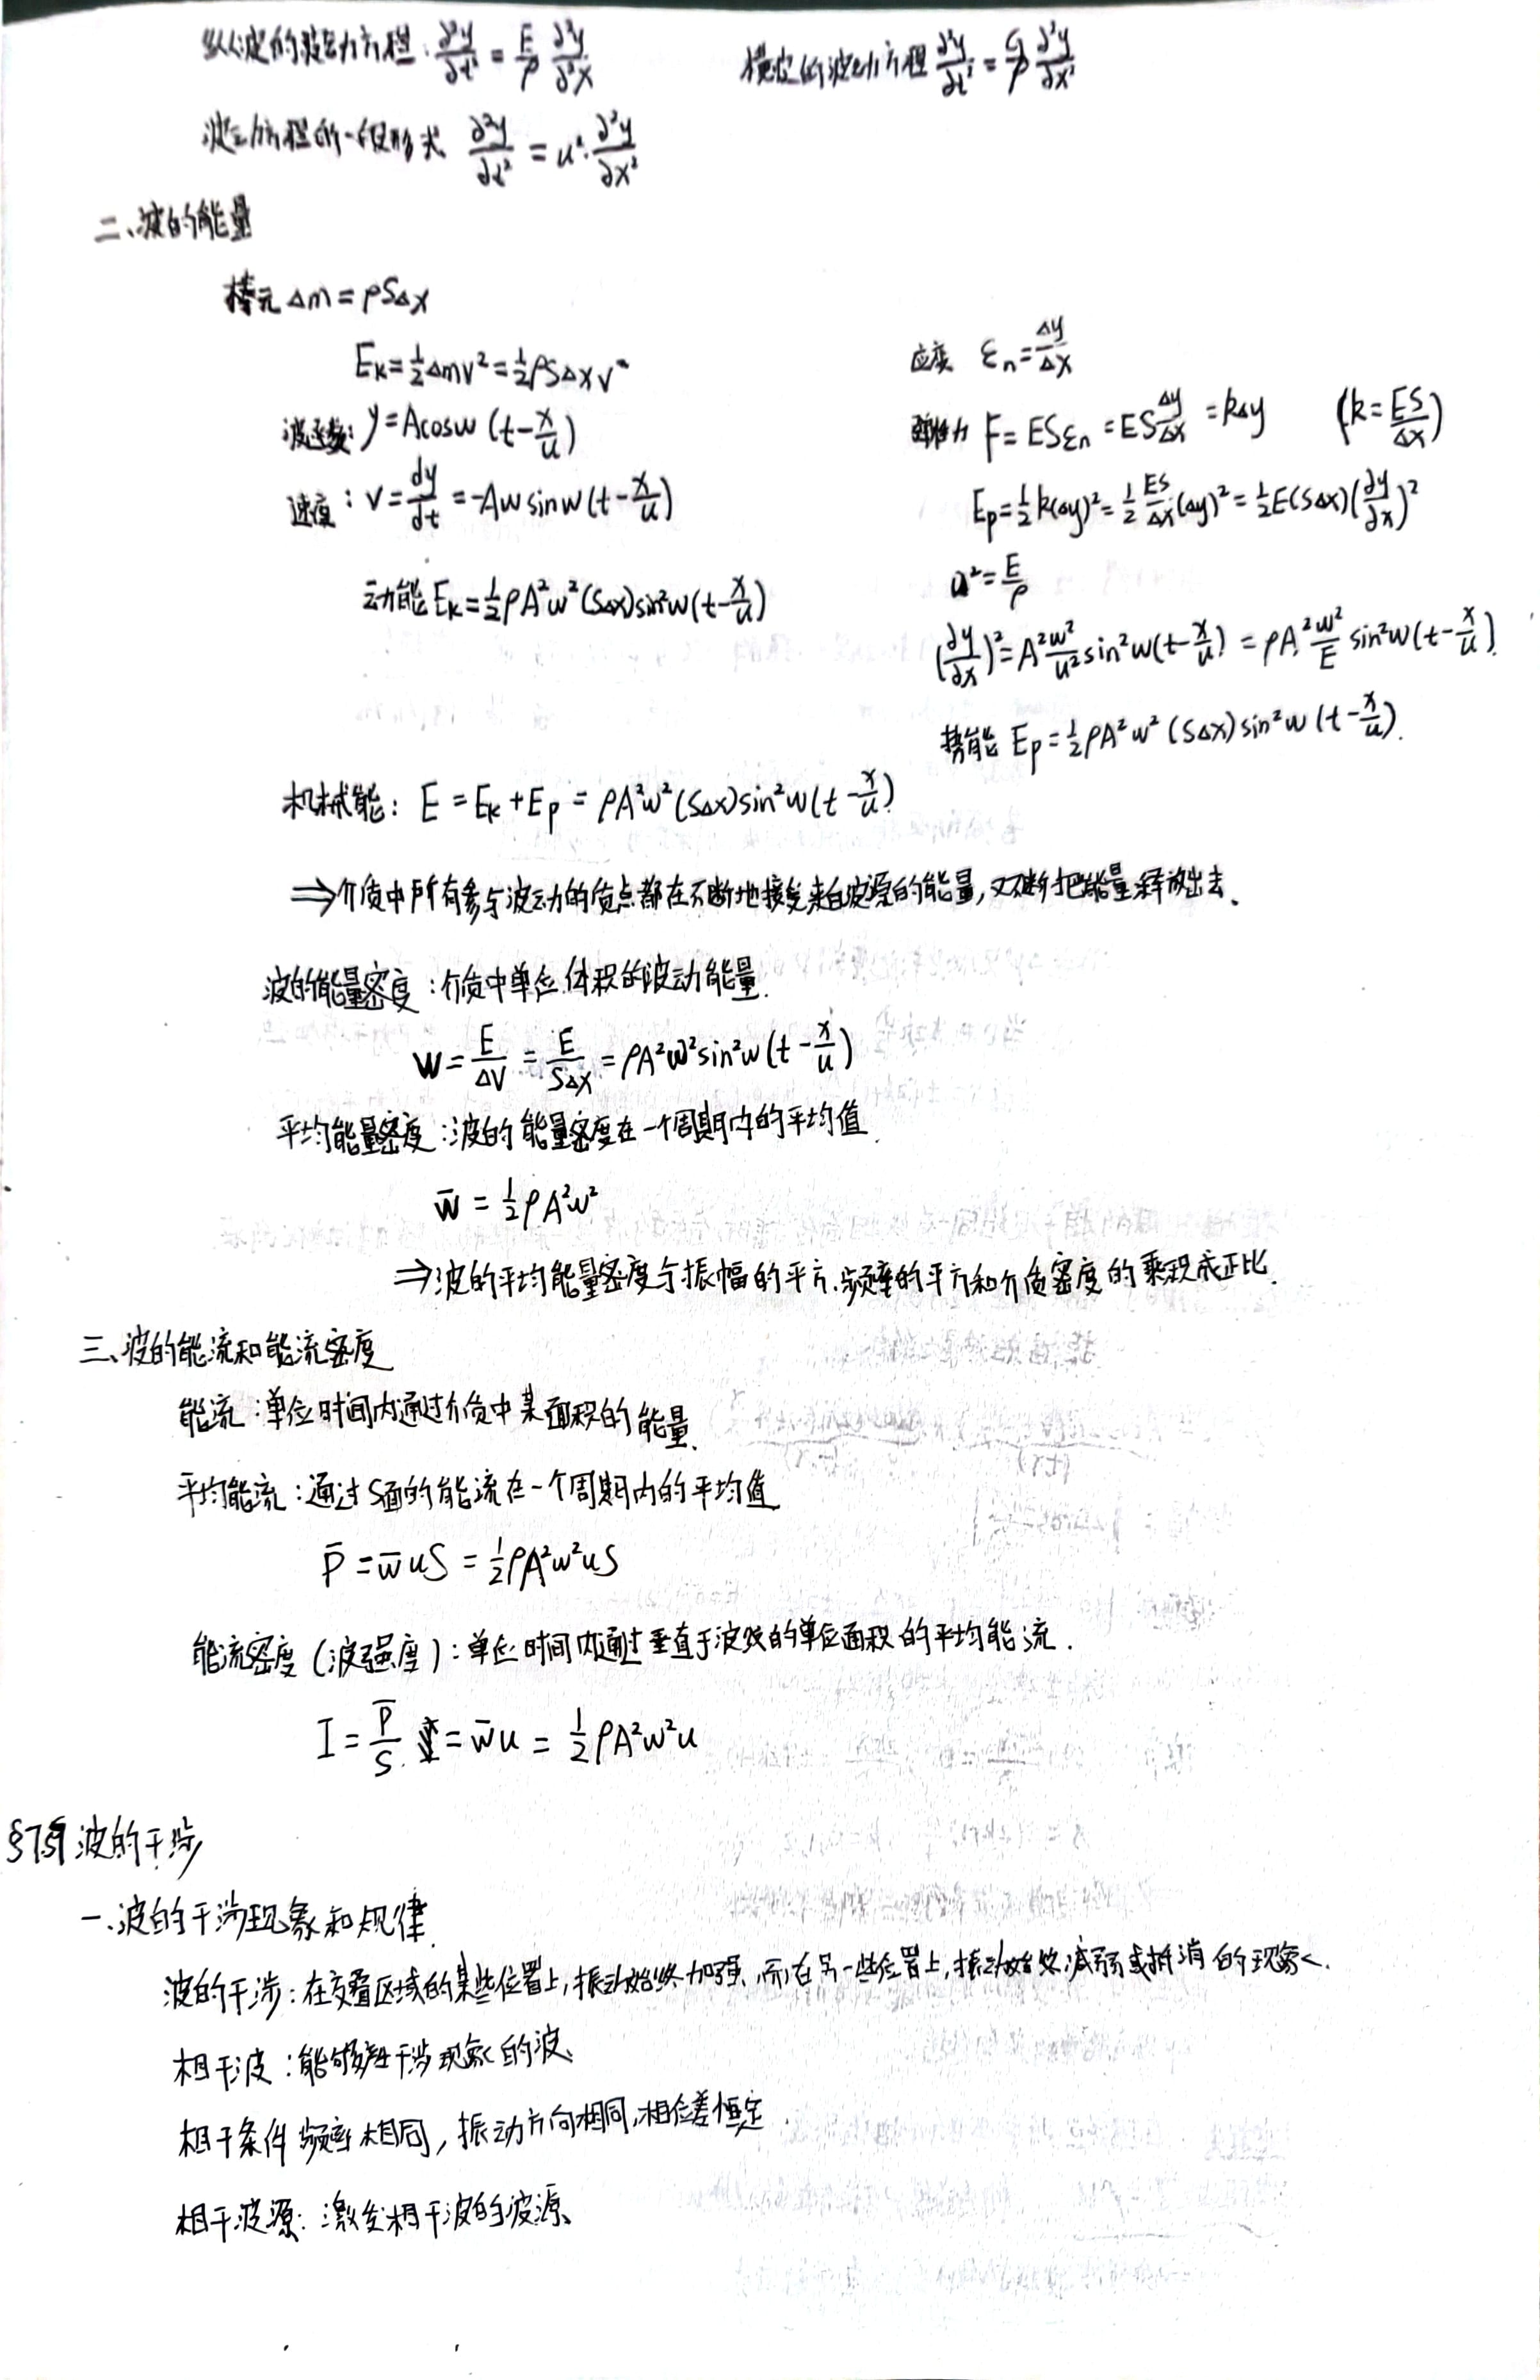 纵波的波动方程: ∂²y/∂t² = E/ρ ∂²y/∂²x  横波的波动方程 ∂²y/∂t² = G/ρ ∂²y/∂x²
波动方程的一般形式 ∂²y/∂t² = u²·∂²y/∂x²
二、波的能量
棒元 Δm = ρSΔx
Eₖ = ½Δmv² = ½ρSΔxv²
应变 εₙ = Δy/Δx
波函数: y = Acosω(t - x/u)
弹性力 F = ESεₙ = ES Δy/Δx = kΔy (k = ES/Δx)
速度: v = dy/dt = -Aωsinω(t - x/u)
Eₚ = ½k(Δy)² = ½ ES/Δx (Δy)² = ½E(SΔx)(∂y/∂x)²
u² = E/ρ
动能 Eₖ = ½ρA²ω²(SΔx)sin²ω(t - x/u)
(∂y/∂x)² = A² ω²/u² sin²ω(t - x/u) = ρA² ω²/E sin²ω(t - x/u).
势能 Eₚ = ½ρA²ω²(SΔx)sin²ω(t - x/u).
机械能: E = Eₖ + Eₚ = ρA²ω²(SΔx)sin²ω(t - x/u)
⇒介质中所有参与波动的质点都在不断地接受来自波源的能量,又不断把能量释放出去.
波的能量密度:介质中单位体积的波动能量.
w = E/ΔV = E/SΔx = ρA²ω²sin²ω(t - x/u)
平均能量密度:波的能量密度在一个周期内的平均值.
w̄ = ½ρA²ω²
⇒波的平均能量密度与振幅的平方.频率的平方和介质密度的乘积成正比.
三、波的能流和能流密度
能流:单位时间内通过介质中某面积的能量.
平均能流:通过S面的能流在一个周期内的平均值
P̄ = w̄uS = ½ρA²ω²uS
能流密度(波强度):单位时间内通过垂直于波线的单位面积的平均能流.
I = P̄/S = w̄u = ½ρA²ω²u
波的干涉
一.波的干涉现象和规律.
波的干涉:在交叠区域的某些位置上,振动始终加强,而在另一些位置上,振动始终减弱或抵消的现象.
相干波:能够产生干涉现象的波、
相干条件 频率相同,振动方向相同,相位差恒定
相干波源:激发相干波的波源、